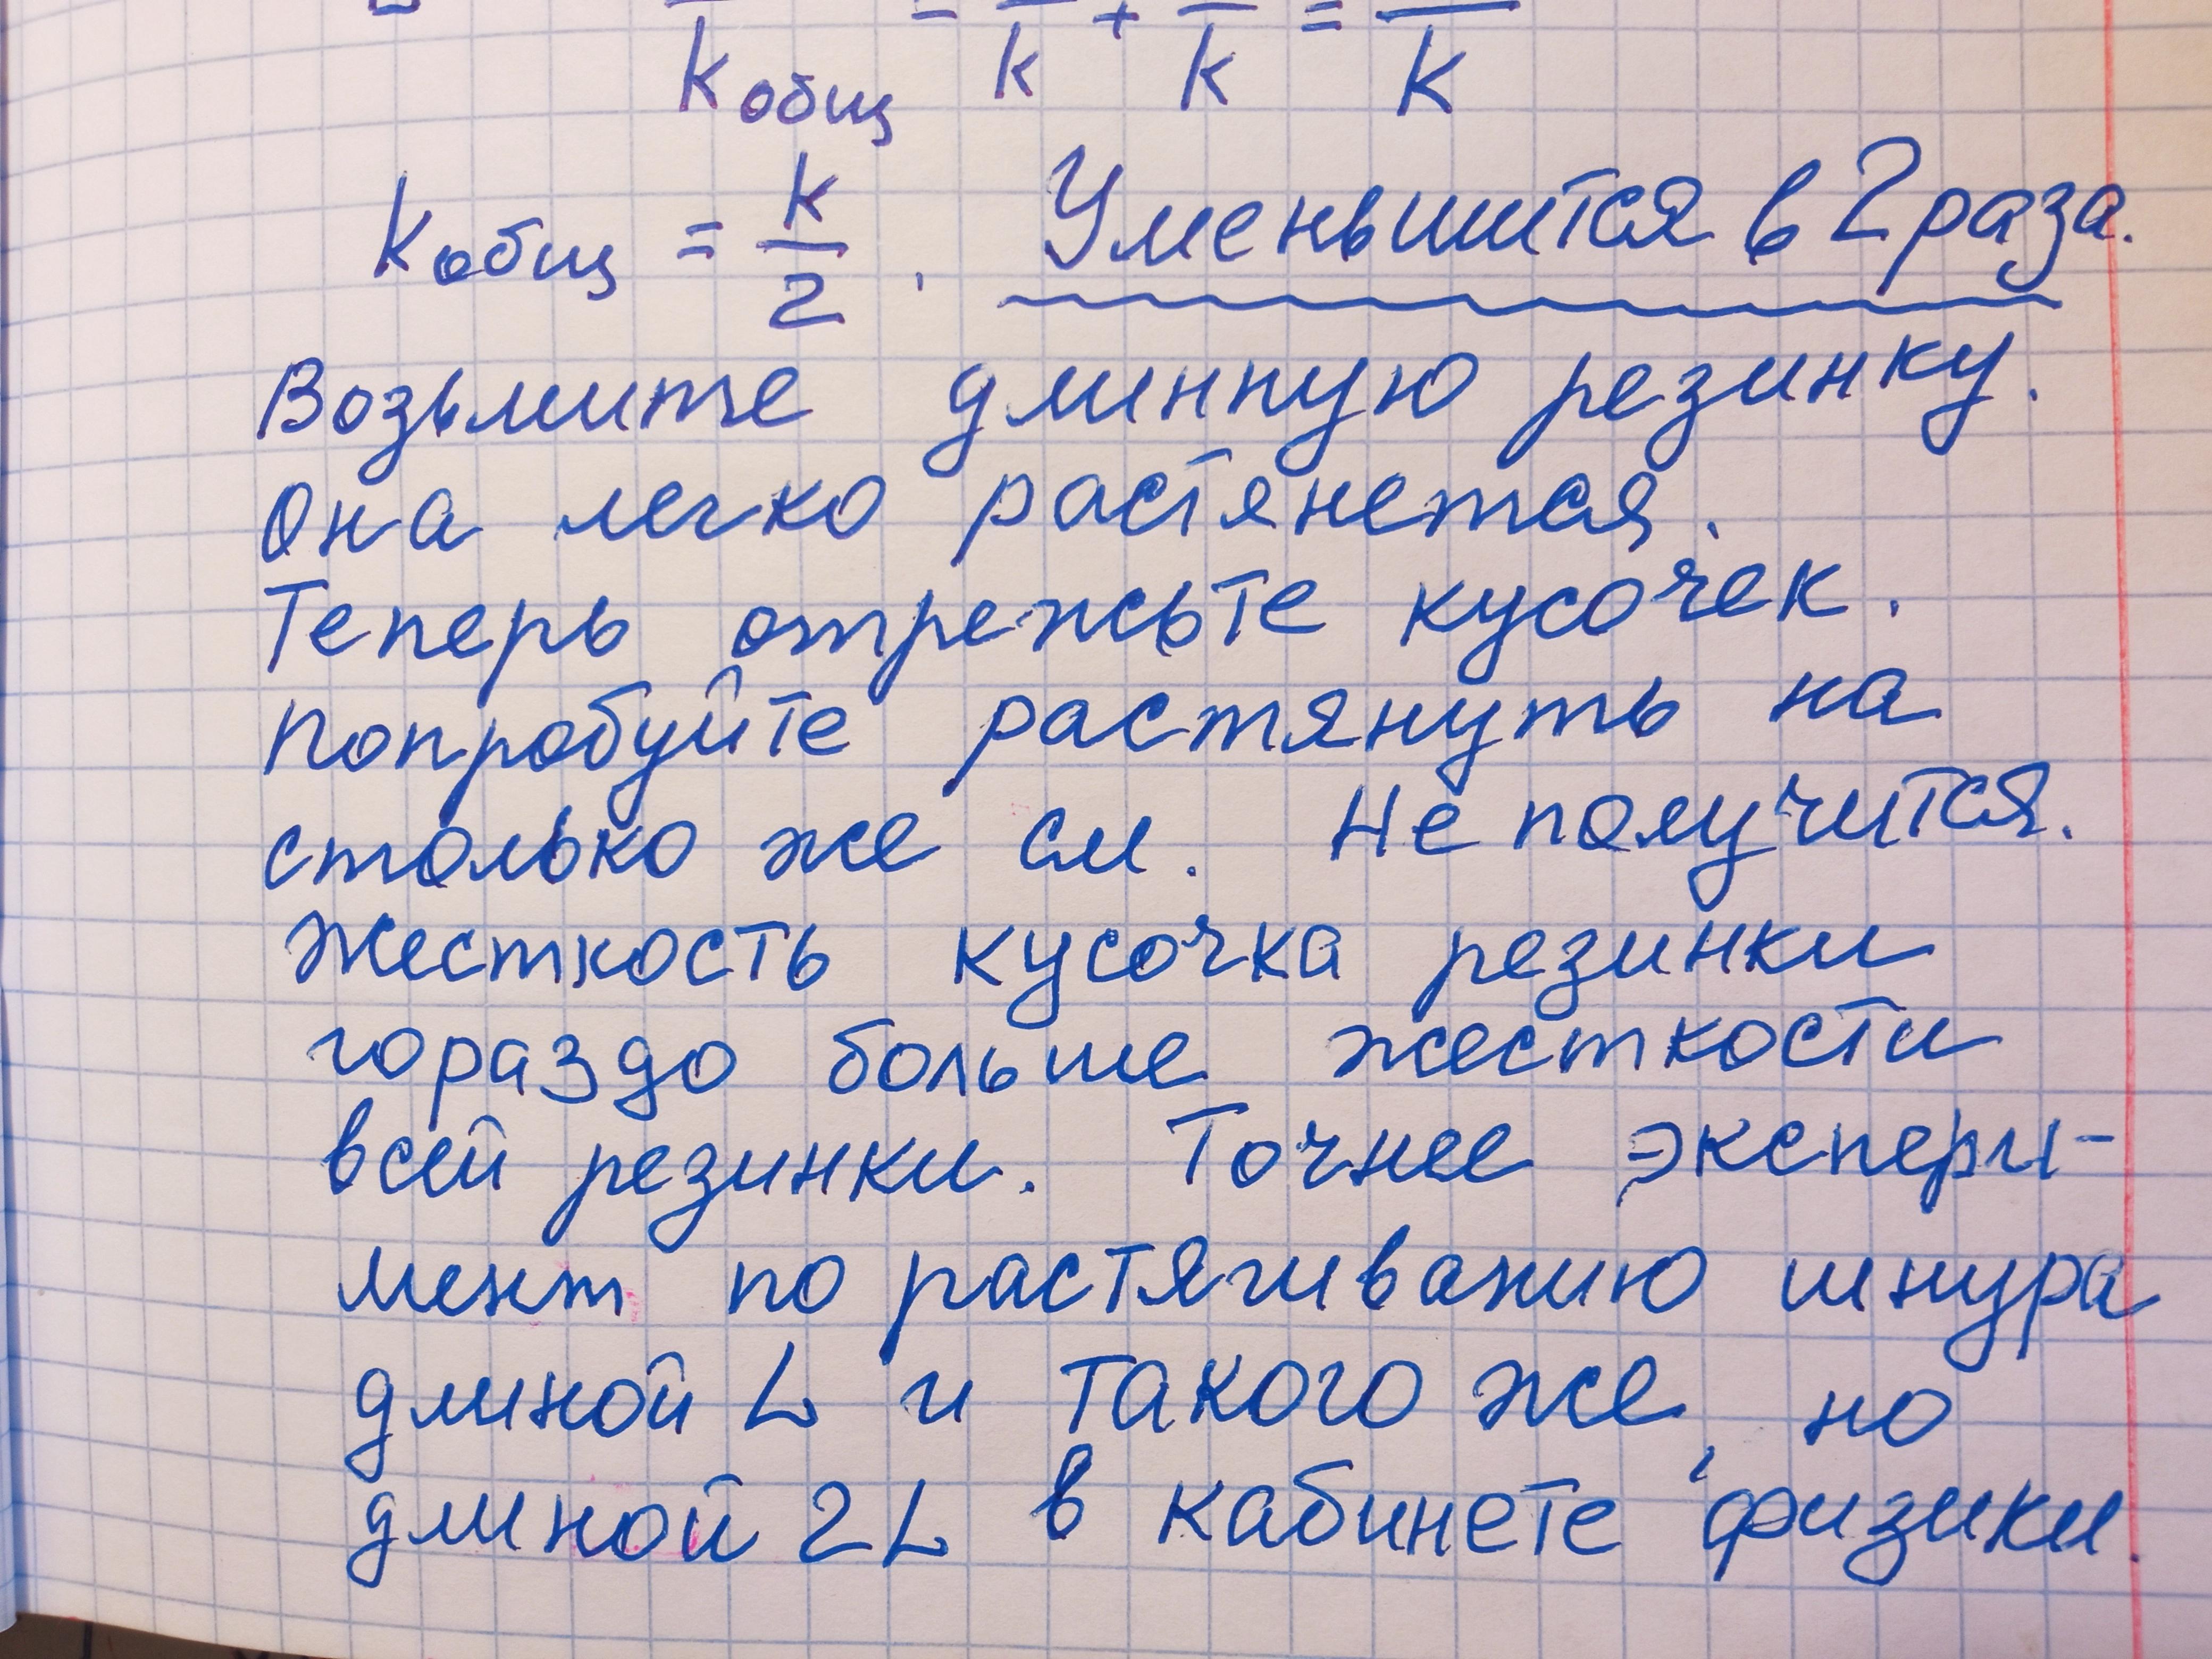 k общ = k + k = k
k общ = k/2 . Уменьшится в 2 раза.
Возьмите длинную резинку.
Она легко растянется.
Теперь отрежьте кусочек.
Попробуйте растянуть на
столько же см. Не получится.
Жесткость кусочка резинки
гораздо больше жесткости
всей резинки. Точнее экспери-
мент по растягиванию шнура
длиной L и такого же, но
длиной 2L в кабинете физики.